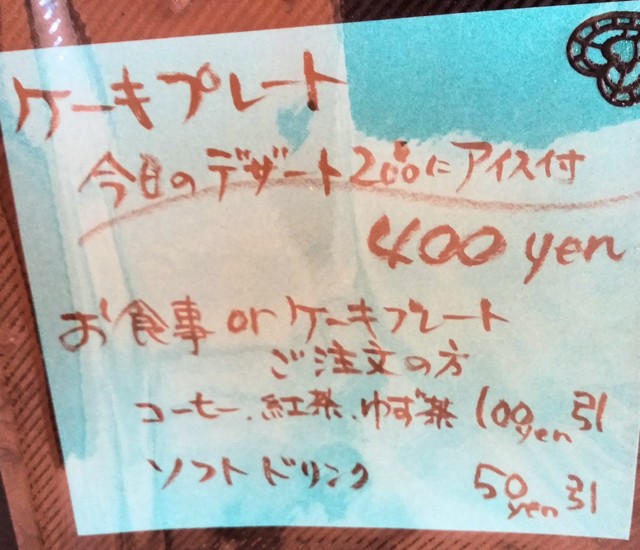 ケーキプレート
今日のデザート2コにアイス付
400 yen
お食事 or ケーキプレート
ご注文の方
コーヒー、紅茶、ゆず茶 100yen引
ソフトドリンク 50yen引